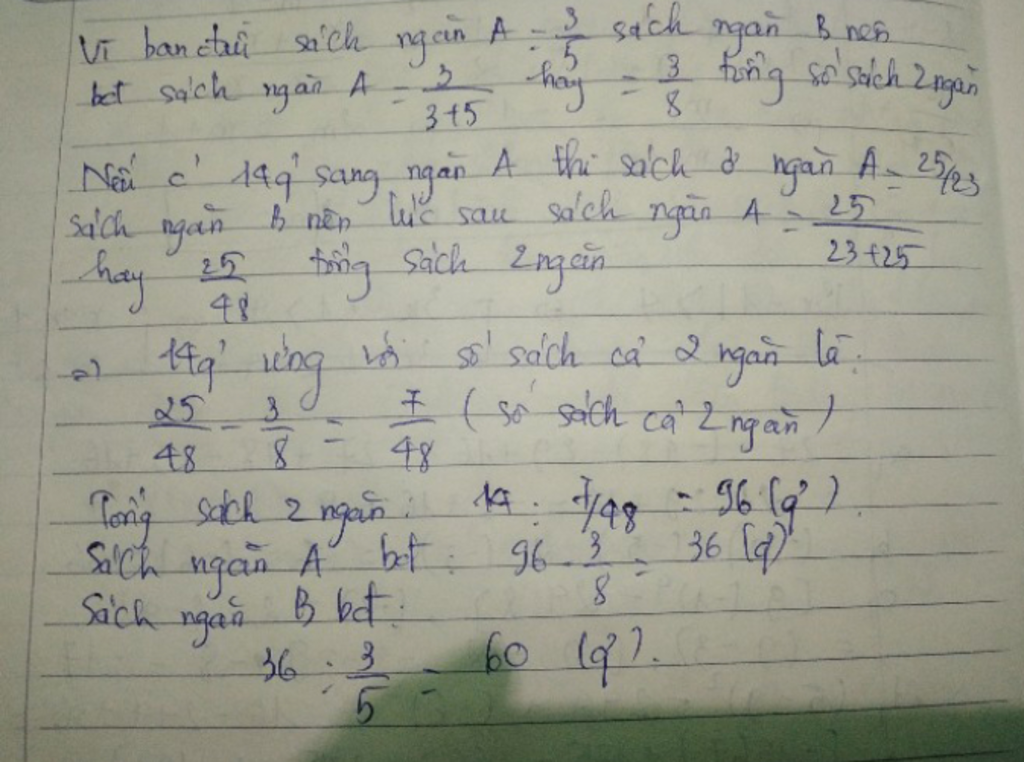 Vì ban đầu sách ngăn A = 3/5 sách ngăn B nên
bđ sách ngăn A = 3/(3+5) hay = 3/8 tổng số sách 2 ngăn
Nếu c' 14q' sang ngăn A thì sách ở ngăn A = 25/23
sách ngăn B nên lúc sau sách ngăn A = 25/(23+25)
hay 25/48 tổng sách 2 ngăn
=> 14q' ứng với số sách cả 2 ngăn là:
25/48 - 3/8 = 7/48 (số sách cả 2 ngăn)
Tổng sách 2 ngăn: 14 : 7/48 = 96 (q')
Sách ngăn A bđ: 96 . 3/8 = 36 (q')
Sách ngăn B bđ:
36 : 3/5 = 60 (q').